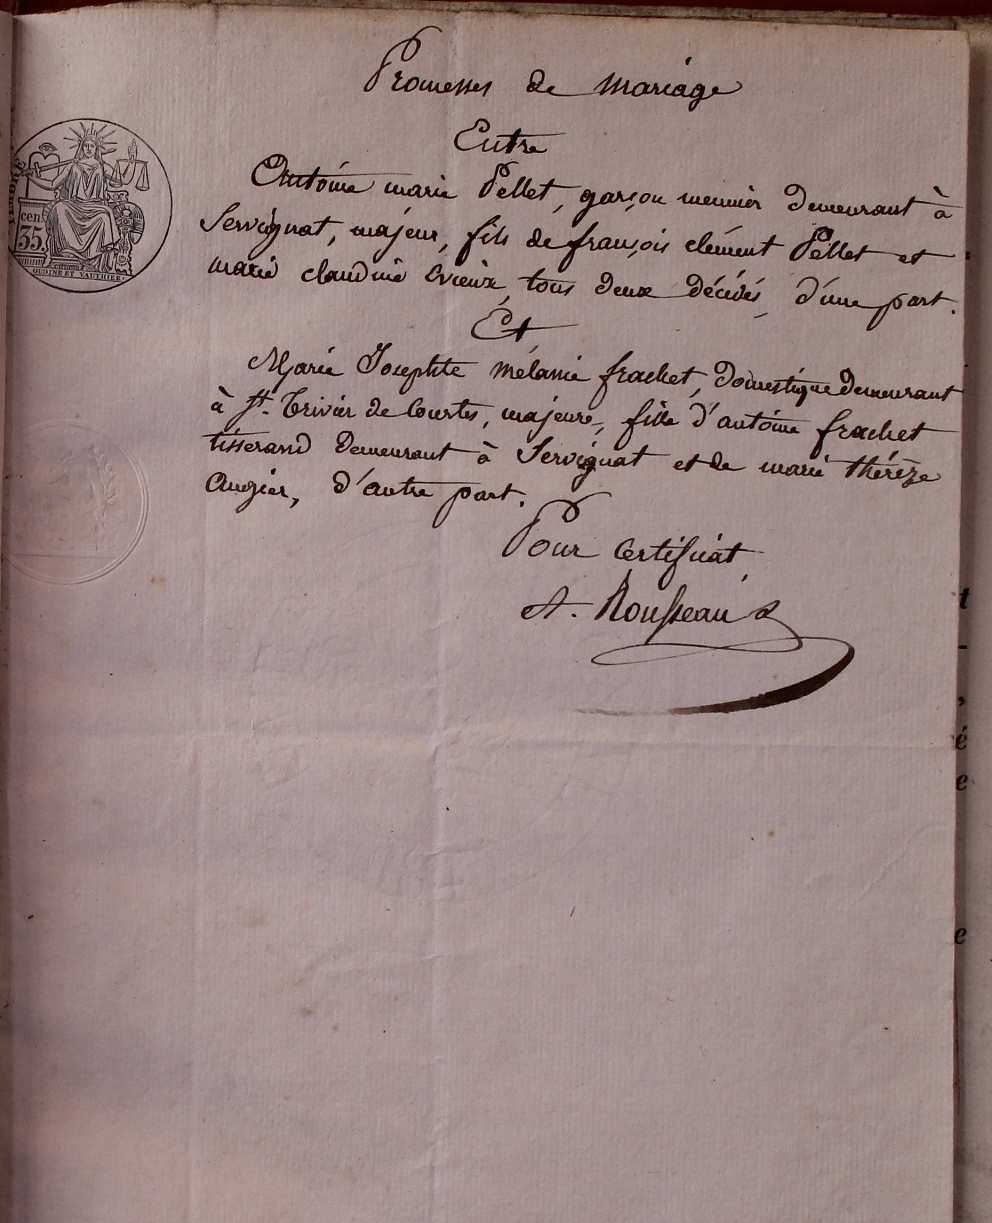 Promesses de mariage
Entre
Antoine marie Pellet, garçon meunier demeurant à
Servignat, majeur, fils de françois clément Pellet et
marie claudine tous deux décédés, d'une part.
Et
Marie Josephte mélanie frachet, domestique demeurant
à St. Trivier de Courtes, majeure, fille d'antoine frachet
tisserand demeurant à Servignat et de marie thérèze
d'autre part.
Pour Certificat
A. Rousseau
TIMBRE
cen
35
OUDINÉ ET VAUTHIER.
t
é
e
e